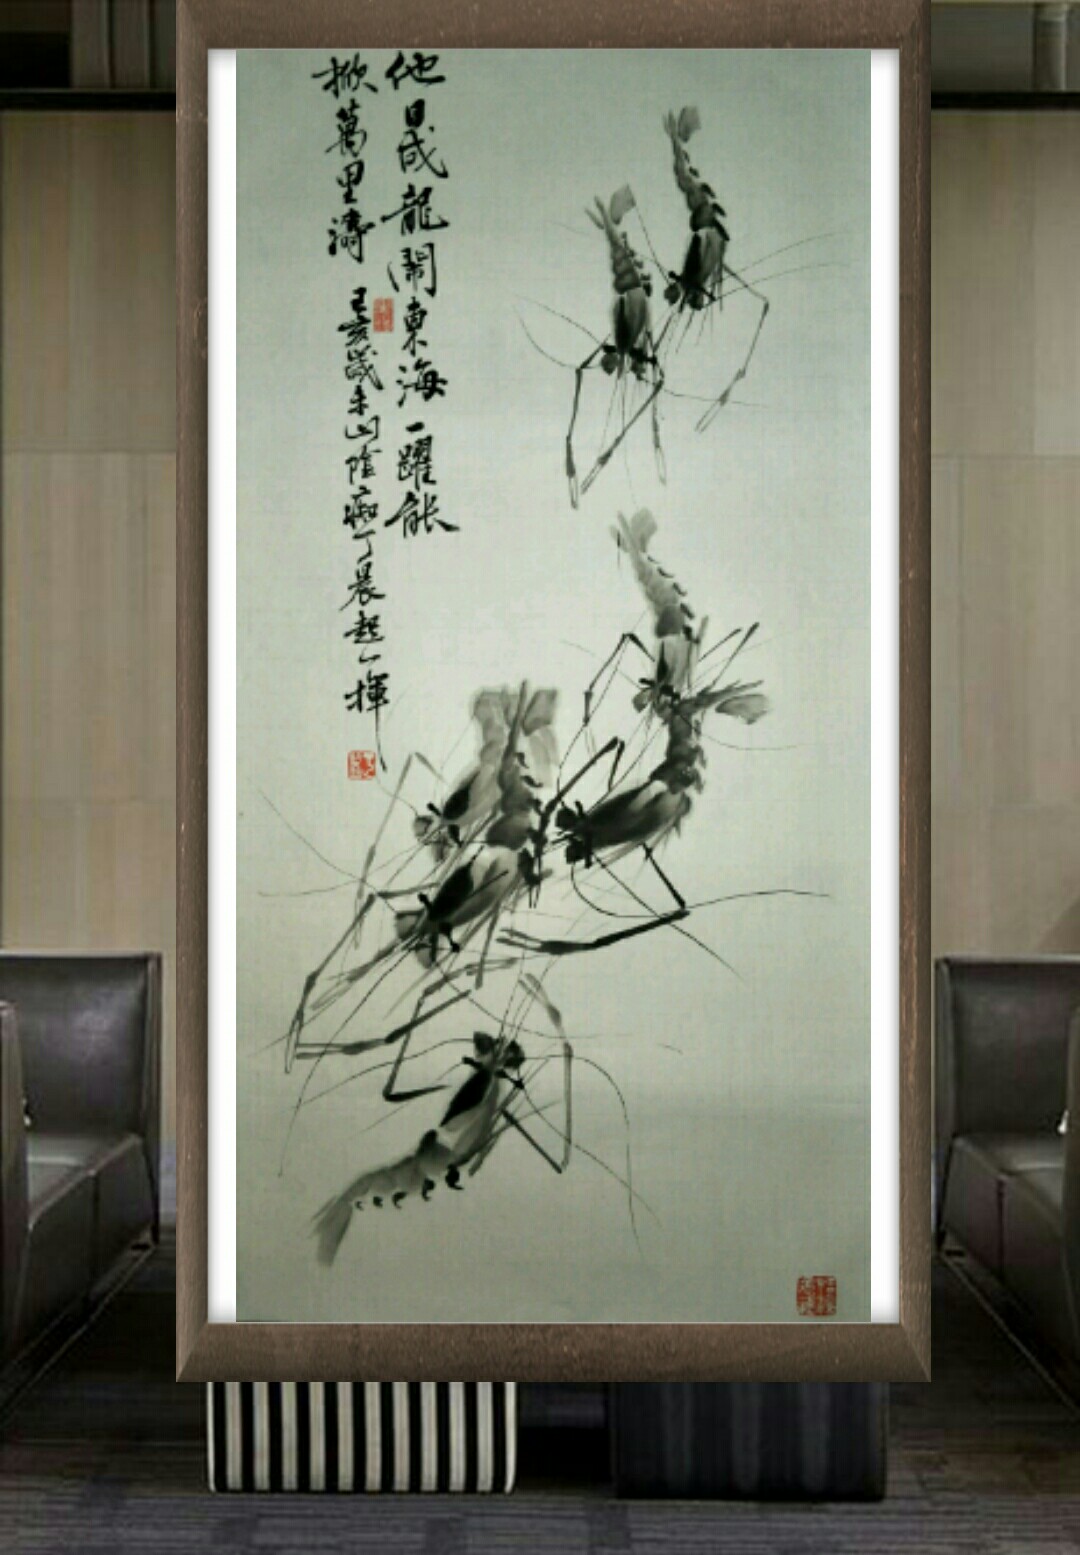 他日成龍鬧東海一躍能
掀萬里濤
己亥歲末山陰痴丁晨起一揮